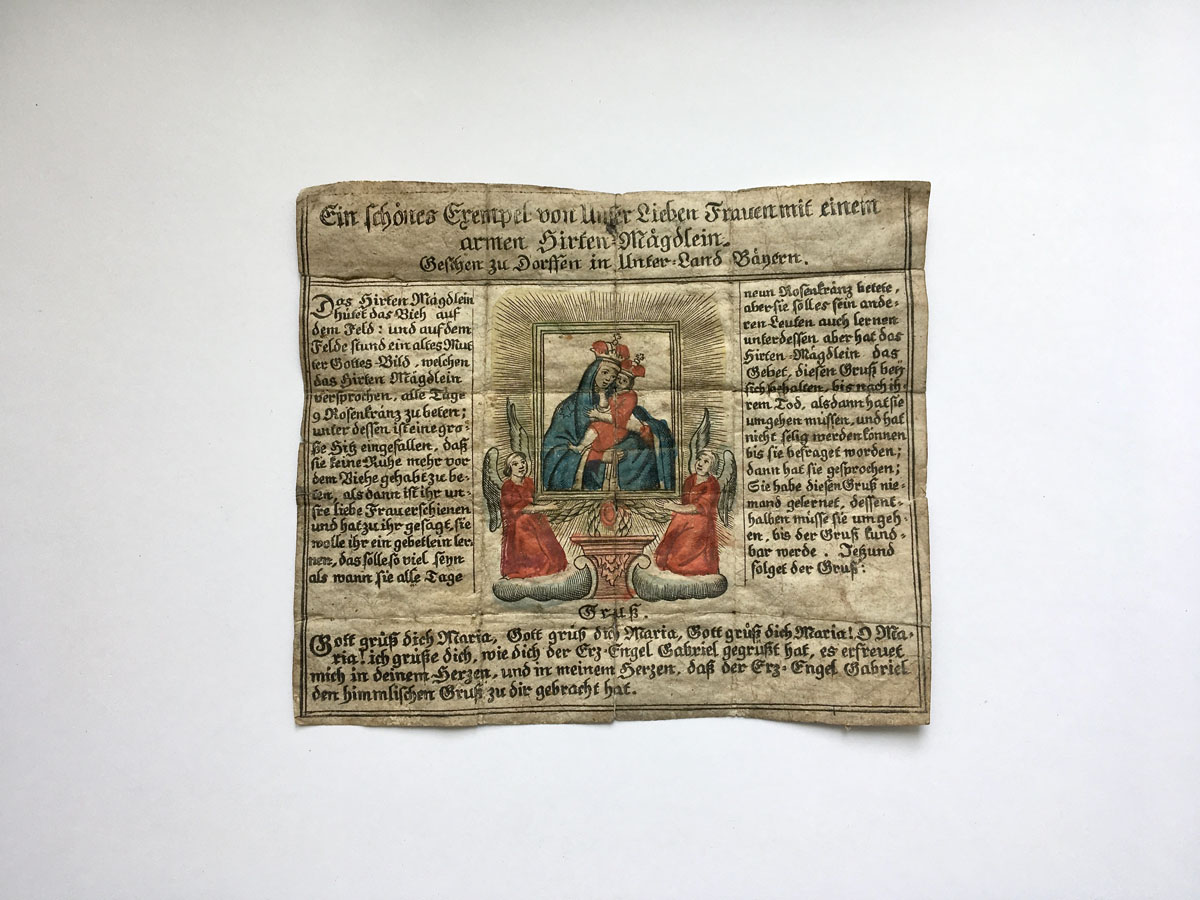 Ein schönes Exempel von Unser Lieben Frauen mit einem
armen Hirten-Mägdlein.
Geschen zu Dorffen in Unter-Land Bäyern.
Das Hirten Mägdlein
hütet das Vieh auf
dem Feld: und auf dem
Felde stund ein altes Mut
ter Gottes-Bild, welchen
das Hirten Mägdlein
versprochen, alle Tage
9 Rosenkränz zu beten;
unter dessen ist eine gro-
ße Hitz eingefallen, daß
sie keine Ruhe mehr vor
dem Viehe gehabt zu be-
ten, als dann ist ihr un-
sre liebe Frau erschienen
und hat zu ihr gesagt, sie
wolle ihr ein gebetlein ler-
nen, das solle so viel seyn
als wann sie alle Tage
neun Rosenkränz betete,
aber sie soll es sein ande-
ren Leuten auch lernen
unterdessen aber hat das
Hirten-Mägdlein das
Gebet, diesen Gruß bey
sich behalten, bis nach ih-
rem Tod, alsdann hat sie
umgehen müssen, und hat
nicht selig werden können
bis sie befraget worden;
dann hat sie gesprochen;
Sie habe diesen Gruß nie-
mand gelernet, dessent-
halben müsse sie umgeh-
en, bis der Gruß kund-
bar werde. Jetzund
folget der Gruß:
Gruß.
Gott grüß dich Maria, Gott grüß dich Maria, Gott grüß dich Maria! O Ma-
ria! ich grüße dich, wie dich der Erz-Engel Gabriel gegrüßt hat, es erfreuet
mich in deinem Herzen, und in meinem Herzen, daß der Erz-Engel Gabriel
den himmlischen Gruß zu dir gebracht hat.